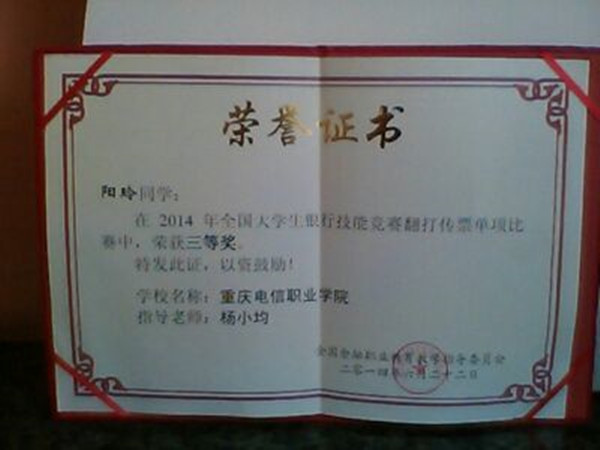 荣誉证书
阳玲同学：
在 2014 年全国大学生银行技能竞赛翻打传票单项比
赛中，荣获三等奖。
特发此证，以资鼓励！
学校名称：重庆电信职业学院
指导老师：杨小均
全国金融职业教育教学指导委员会
二零一四年六月二十二日